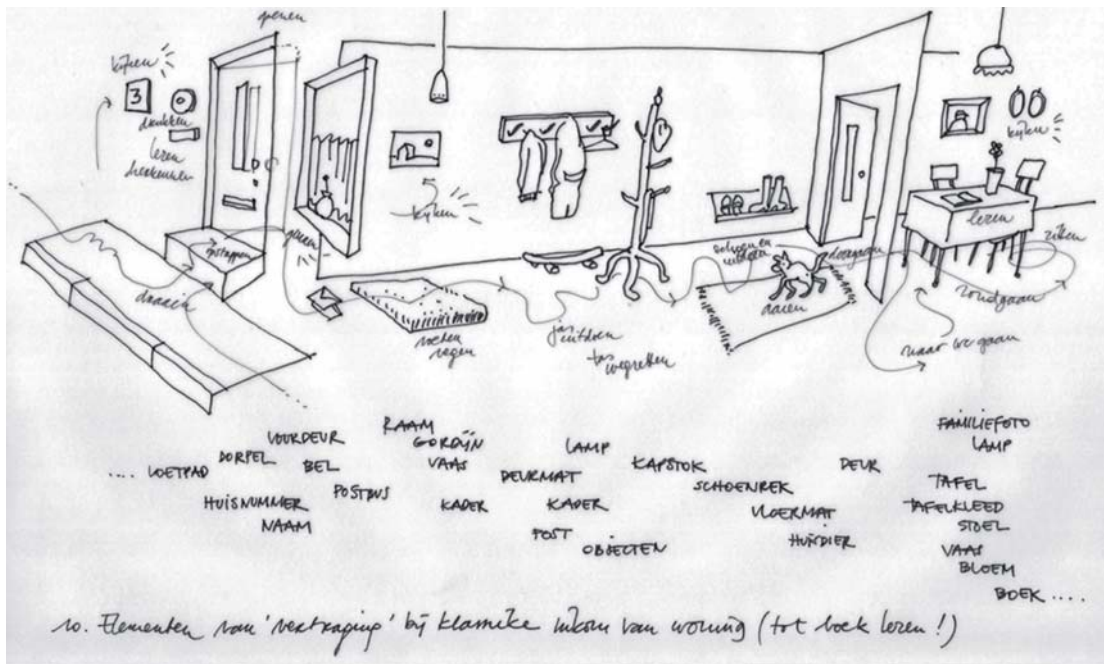 openen
kijken
3
drukken
leren
herkennen
opstappen
draaien
kijken
voeten
vegen
jas
uitdoen
tas
wegzetten
schoenen
uitdoen
doorgaan
aaien
kijken
lezen
zitten
rondgaan
naar wc gaan
... VOETPAD
DORPEL
VOORDEUR
BEL
HUISNUMMER
NAAM
POSTBUS
RAAM
GORDIJN
VAAS
KADER
DEURMAT
LAMP
KADER
POST
OBJECTEN
KAPSTOK
SCHOENREK
VLOERMAT
HUISDIER
DEUR
FAMILIEFOTO
LAMP
TAFEL
TAFELKLEED
STOEL
VAAS
BLOEM
BOEK ....
10. Elementen van 'vertraging' bij klassieke inkom van woning (tot boek lezen!)